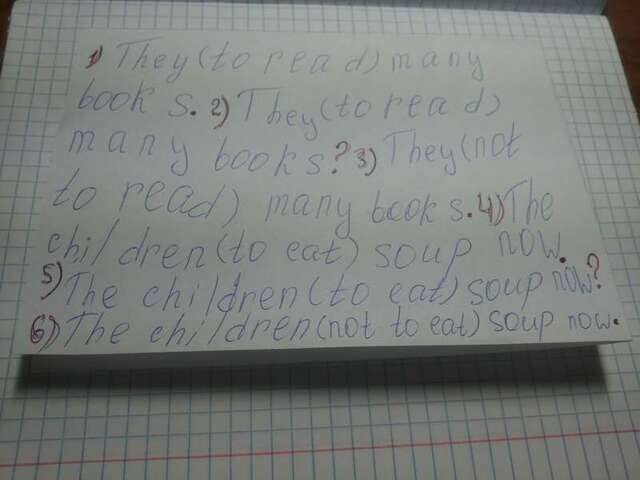 1) They (to read) many
books. 2) They (to read)
many books? 3) They (not
to read) many books. 4) The
children (to eat) soup now.
5) The children (to eat) soup now?
6) The children (not to eat) soup now.